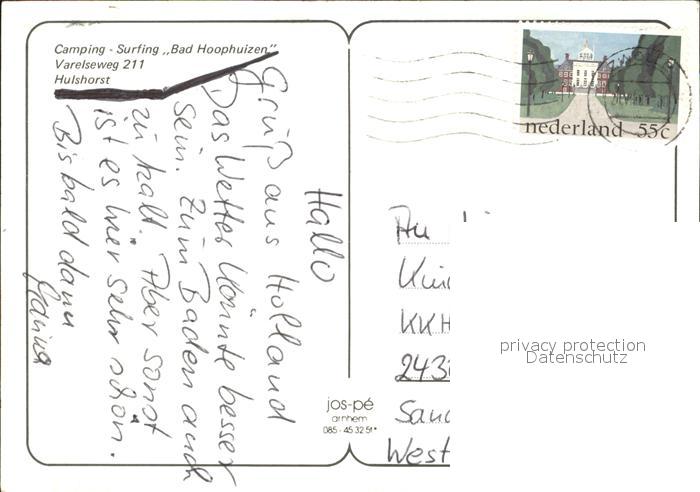 Camping - Surfing „Bad Hoophuizen"
Varelseweg 211
Hulshorst
Hallo
Grüß aus Holland
Das Wetter könnte besser
sein. Zum Baden auch
zu kalt. Aber sonst
ist es hier sehr schön.
Bis bald dann
nederland 55c
An
KKH
243
West
privacy protection
Datenschutz
jos-pé
arnhem
085 - 45 32 51*